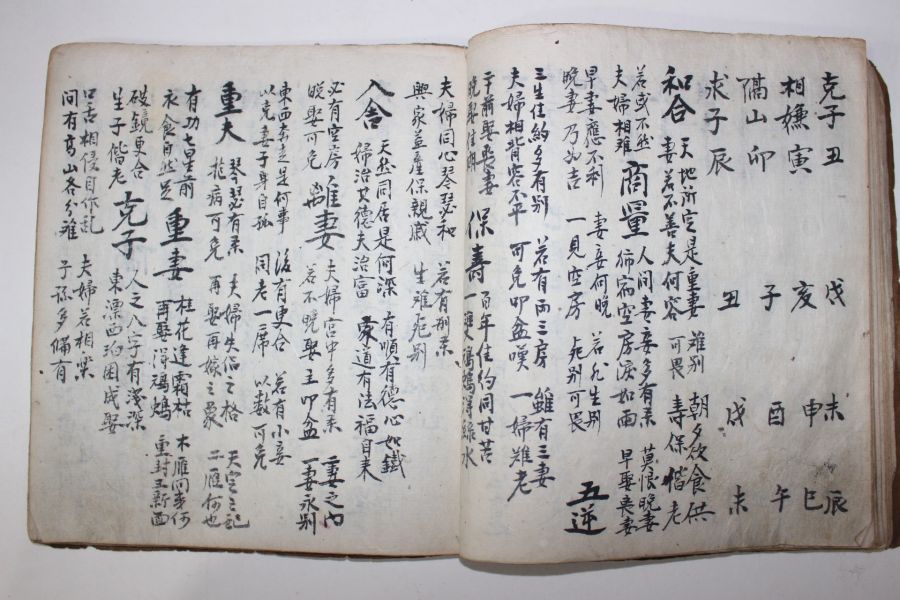 克子 丑 戊 未 辰
相嫌 寅 亥 申 巳
隔山 卯 子 酉 午
求子 辰 丑 戌 未
和合 天地所定是重妻 难别 朝夕飮食供
妻若不善夫何容 可畏 壽保偕老
若或不然 商量 人间妻妾多有系 莫恨晩妻
夫婦相难 獨宿空房淚如雨 早娶丧妻
早妻應不利 妻妾何晩 若非生别
晩妻乃为吉 一見空房 死别可畏 五逆
三生佳約多有别 若有两三房 雖有三妻
夫婦相背容不平 可免叩盆嘆 一婦难老
于前娶丧妻 保壽 百年佳約同甘苦
晩娶佳興 一雙鴻鴈得綠水
夫婦同心琴瑟和 若有刑系
興家益產保親戚 生难死别
入舍 天然同居是何深 有順有德心如鐵
婦治其德夫治富 家道有法福自来
必有空房 離妻 夫婦宮中多有系 二妻之内
晩娶可免 若不晩娶主叩盆 一妻永别
東西奔走是何事 後有更合 若有小妾
以克妻子身自孤 同老一席 以数可免
重夫 琴瑟必有系 夫婦失侣之格 天定之記
非病可免 再娶再嫁之象 二雁何也
有功七星前 重妻 桂花逢霜枯 木雁向多何
衣食自然足 再娶得鴻鴆 重封三新酉
破鏡更合 克子 人之八字有淺深
生子偕老 東漂西泊困成娶
口舌相侵自作乱 夫婦若相樂
间有高山各分难 子孫多偏有